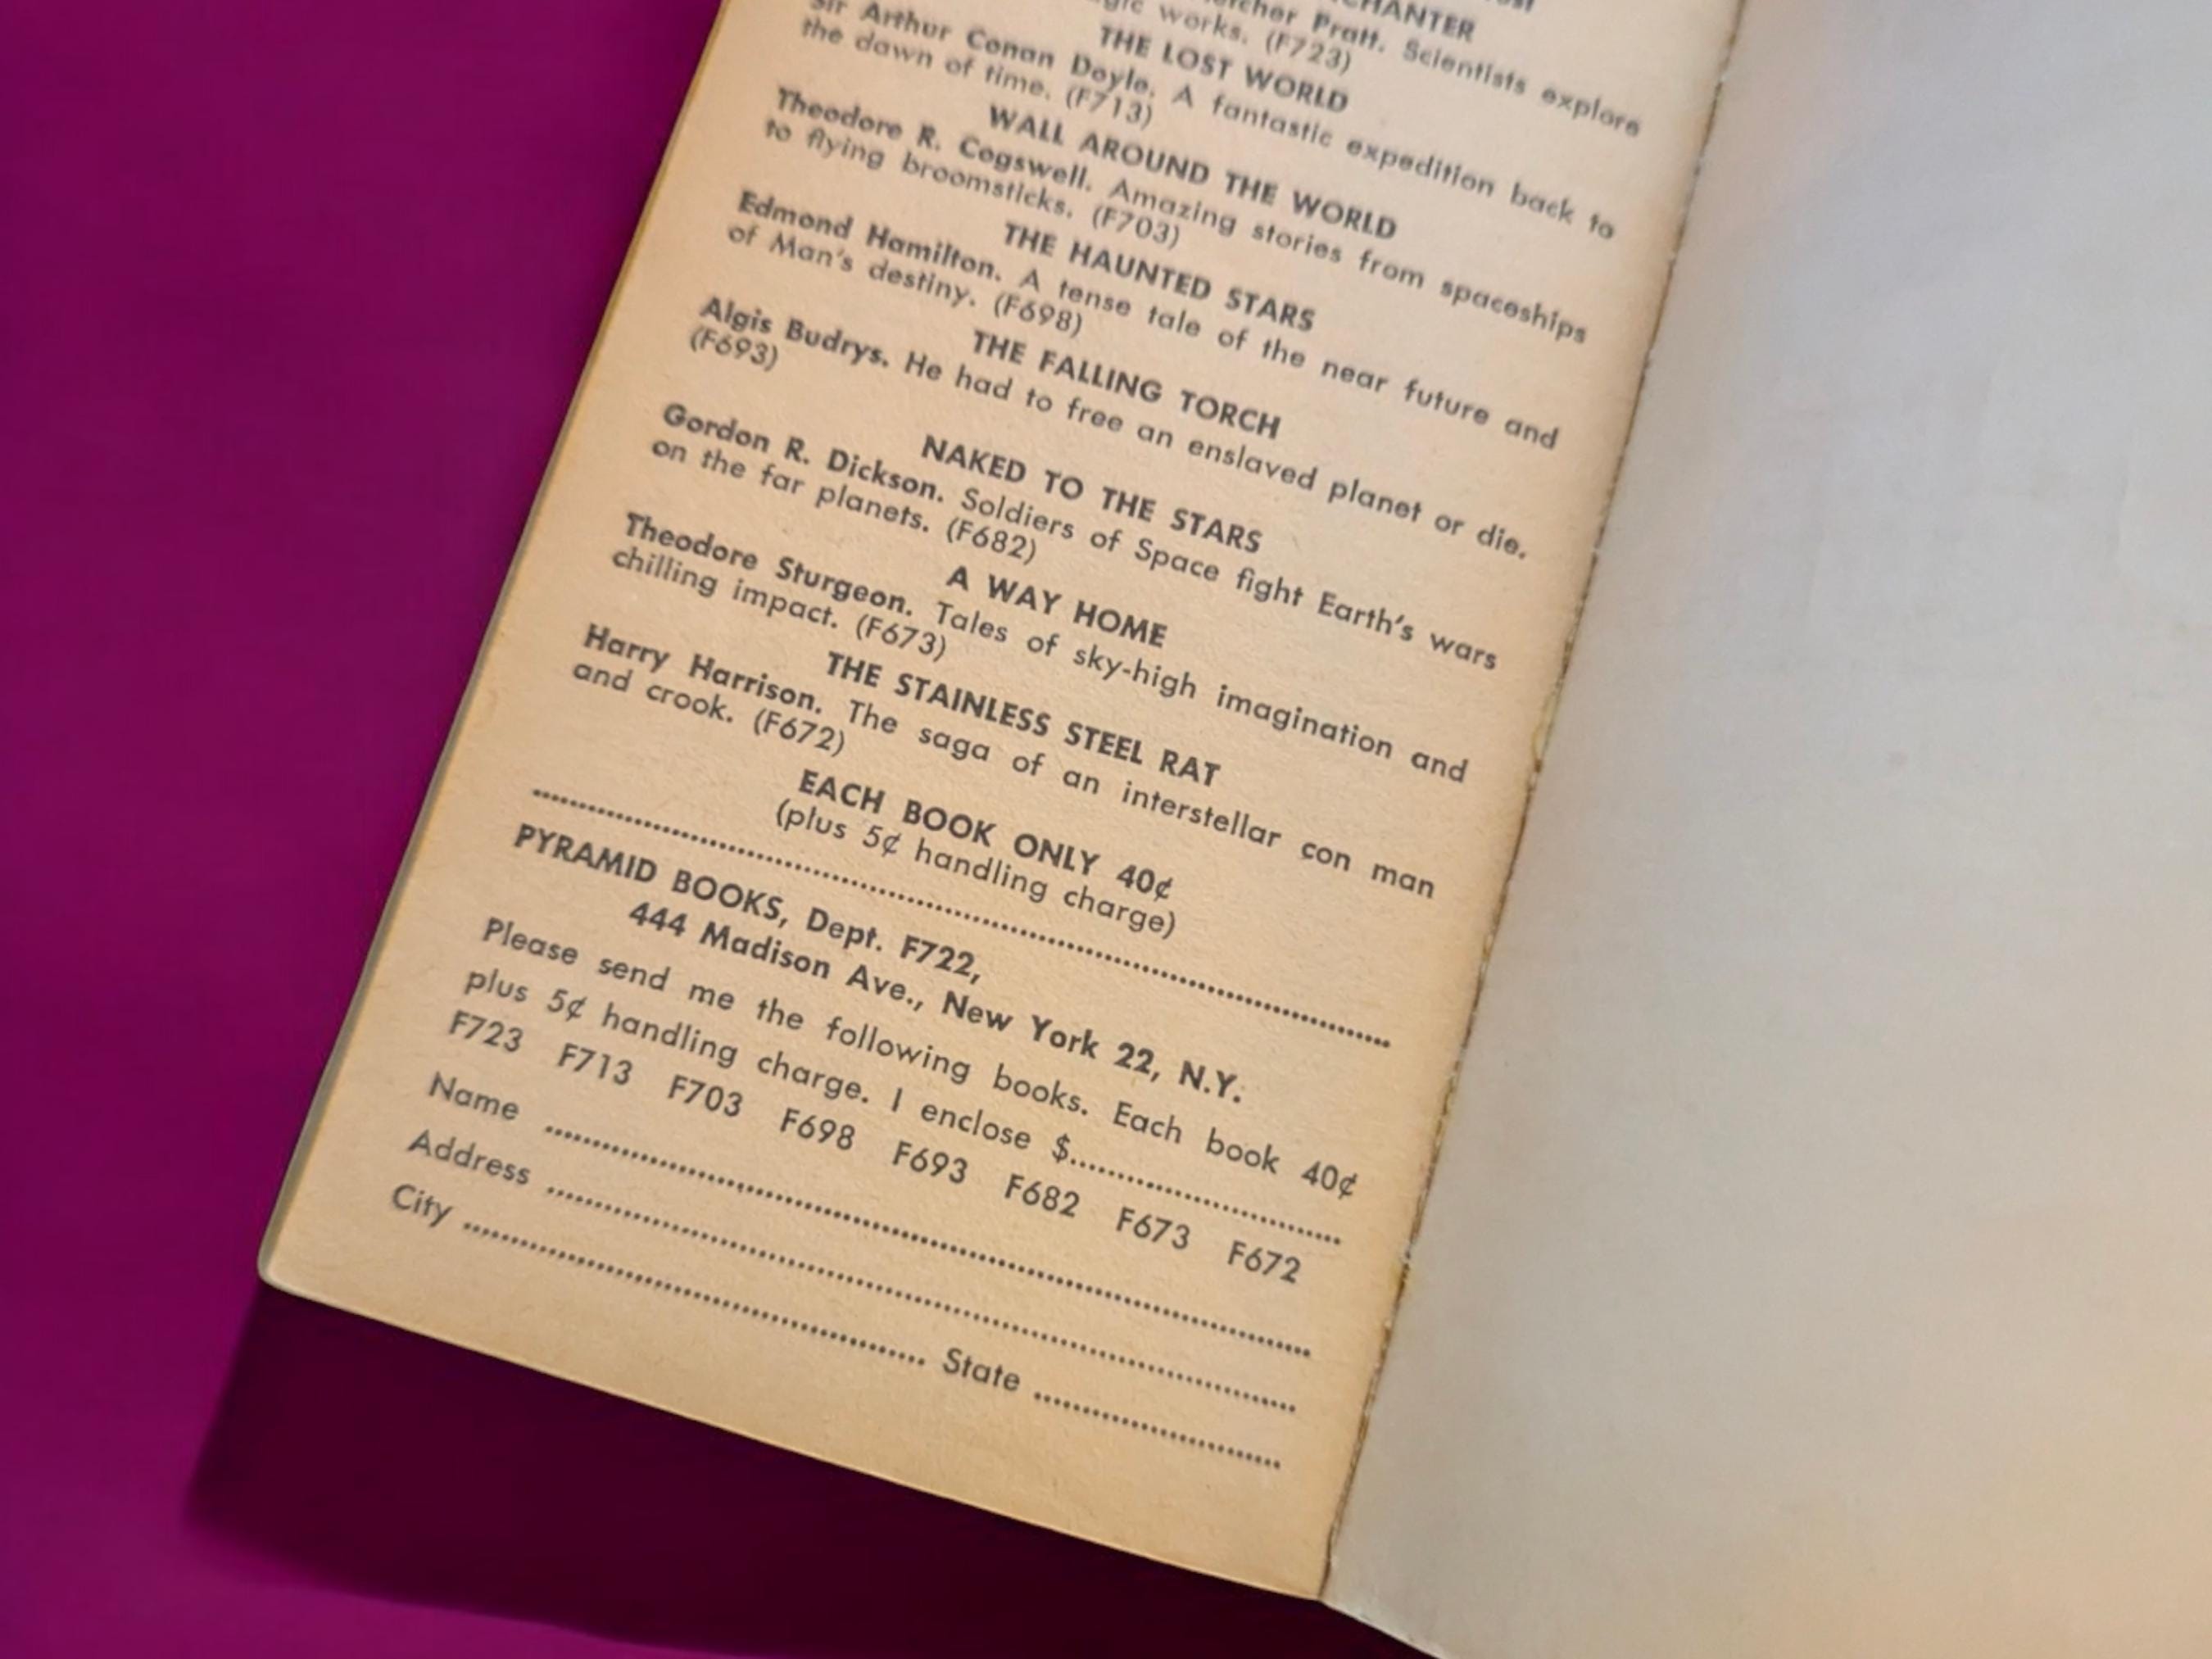 CHANTER
Pratt. Scientists explore
works. (F723)
THE LOST WORLD
Sir Arthur Conan Doyle. A fantastic expedition back to
the dawn of time. (F713)
WALL AROUND THE WORLD
Theodore R. Cogswell. Amazing stories from spaceships
to flying broomsticks. (F703)
THE HAUNTED STARS
Edmond Hamilton. A tense tale of the near future and
of Man's destiny. (F698)
THE FALLING TORCH
Algis Budrys. He had to free an enslaved planet or die.
(F693)
NAKED TO THE STARS
Gordon R. Dickson. Soldiers of Space fight Earth's wars
on the far planets. (F682)
A WAY HOME
Theodore Sturgeon. Tales of sky-high imagination and
chilling impact. (F673)
THE STAINLESS STEEL RAT
Harry Harrison. The saga of an interstellar con man
and crook. (F672)
EACH BOOK ONLY 40¢
(plus 5¢ handling charge)
PYRAMID BOOKS, Dept. F722,
444 Madison Ave., New York 22, N.Y.
Please send me the following books. Each book 40¢
plus 5¢ handling charge. I enclose $..............................
F723 F713 F703 F698 F693 F682 F673 F672
Name ..............................
Address ..............................
City .............................. State ..............................